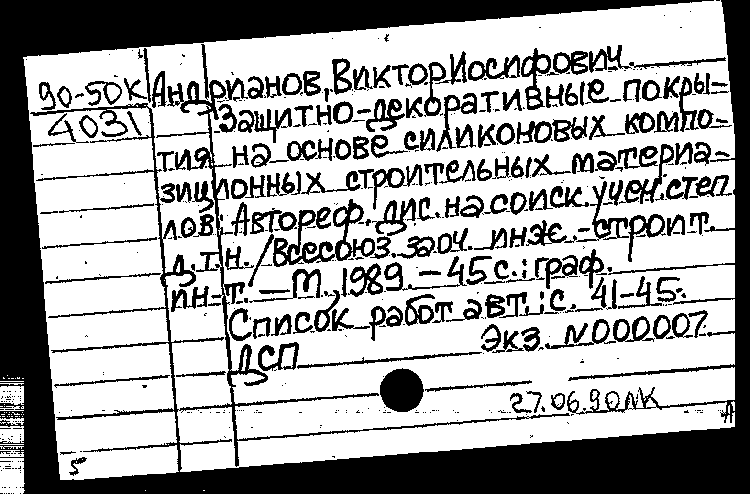 90-50К Андрианов, Виктор Иосифович.
4031 Защитно-декоративные покры-
тия на основе силиконовых компо-
зиционных строительных материа-
лов: Автореф. дис. на соиск. учен. степ.
д.т.н. / Всесоюз. заоч. инж.-строит.
ин-т. — М., 1989. — 45 с.: граф.
Список работ авт.: с. 41-45.
ДСП Экз. N000007.
27.06.90 ЛК
А
5